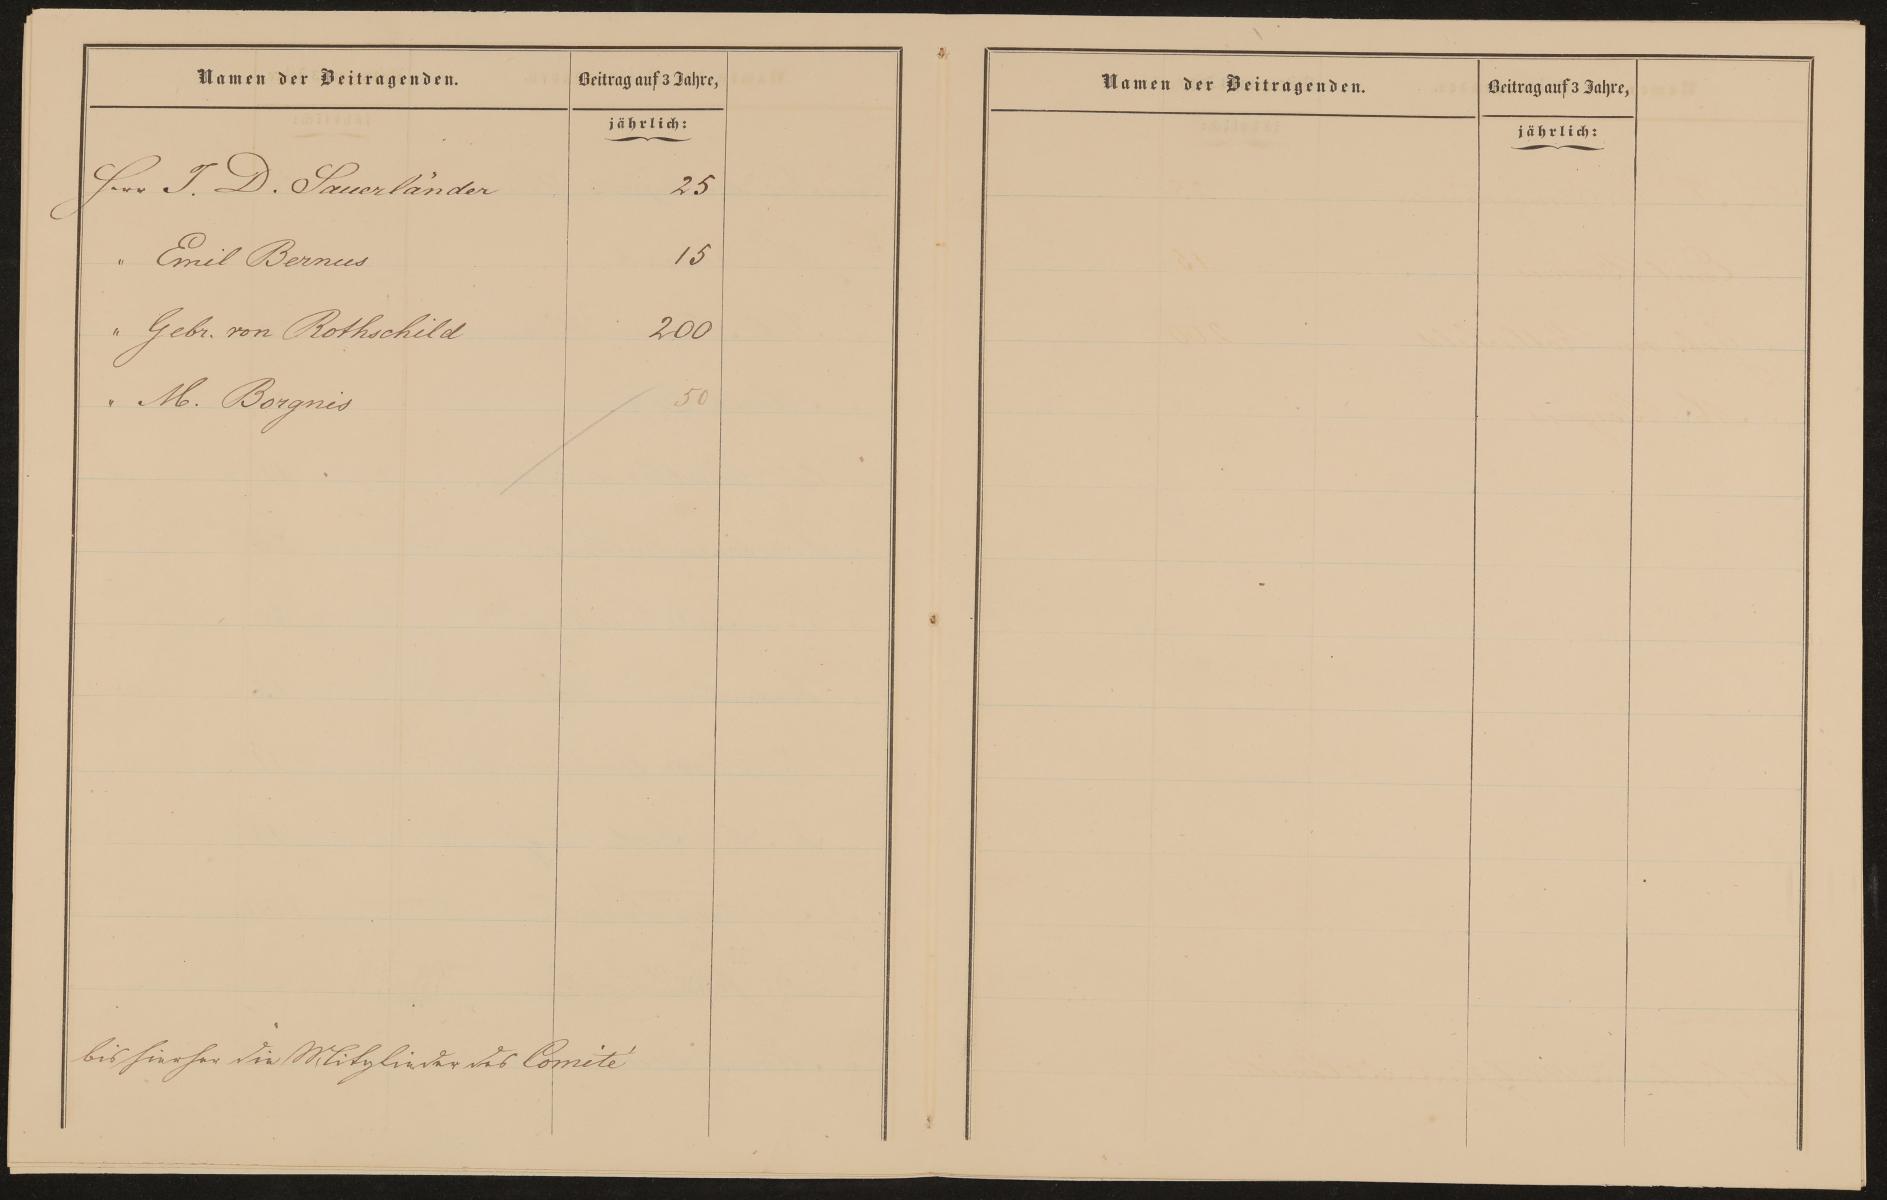 Namen der Beitragenden. Beitrag auf 3 Jahre,
jährlich:
Herr J. D. Sauerländer 25
" Emil Bernus 15
" Gebr. von Rothschild 200
" M. Borgnis 50
bis hierher die Mitglieder des Comité
Namen der Beitragenden. Beitrag auf 3 Jahre,
jährlich: